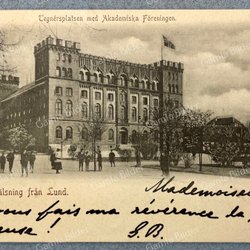 Tegnérsplatsen med Akademiska Föreningen.
älsning från Lund.
Mademoisel
vous fais ma révérence la
euse! G.B.